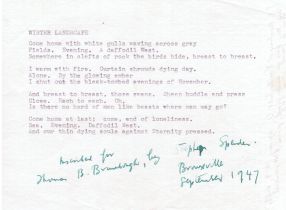 WINTER LANDSCAPE
Come home with white gulls waving across gray
Fields. Evening. A daffodil West.
Somewhere in clefts of rock the birds hide, breast to breast.
I warm with fire. Curtain shrouds dying day.
Alone. By the glowing ember
I shut out the bleak-tombed evenings of November.
And breast to breast, those swans. Sheep huddle and press
Close. Each to each. Oh,
Is there no herd of men like beasts where man may go?
Come home at last; come, end of loneliness.
Sea. Evening. Daffodil West.
And our thin dying souls against Eternity pressed.
for
Thomas B. by
Stephen Spender.
September 1947